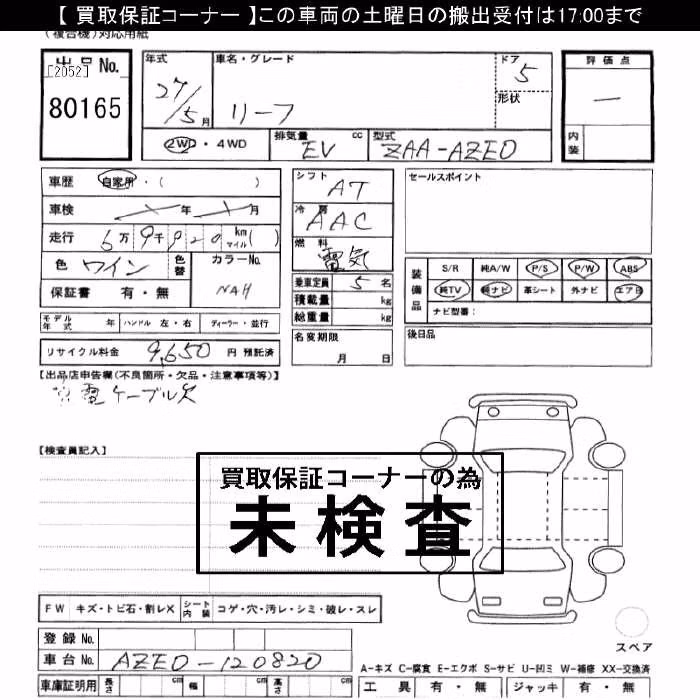 【 買取保証コーナー 】この車両の土曜日の搬出受付は17:00まで
(複合機)対応用紙
出品No.
[2052]
80165
年式
27/5月
車名・グレード
リーフ
ドア
5
形状
評価点
—
内装
2WD・4WD
排気量 cc
EV
型式
ZAA-AZEO
車歴 自家用・( )
車検 年 月
走行 6万9千920 km マイル( )
色 ワイン
色替
カラーNo.
NAH
保証書 有・無
シフト AT
冷房 AAC
燃料 電気
乗車定員 5 名
積載量 kg
総重量 kg
セールスポイント
装備品
S/R 純A/W P/S P/W ABS
純TV 純ナビ 革シート 外ナビ エアB
ナビ型番:
モデル年式 年 ハンドル 左・右 ディーラー・並行
名変期限
月 日
後日品
リサイクル料金 9,650 円 預託済
【出品店申告欄(不良箇所・欠品・注意事項等)】
充電ケーブル欠
【検査員記入】
買取保証コーナーの為
未検査
FW キズ・トビ石・割レX
シート内装 コゲ・穴・汚レ・シミ・破レ・スレ
スペア
登録No.
車台No. AZEO-120820
A-キズ C-腐食 E-エクボ S-サビ U-凹ミ W-補修 XX-交換済
車庫証明用 長さ cm 幅 cm 高さ cm
工具 有・無 ジャッキ 有・無